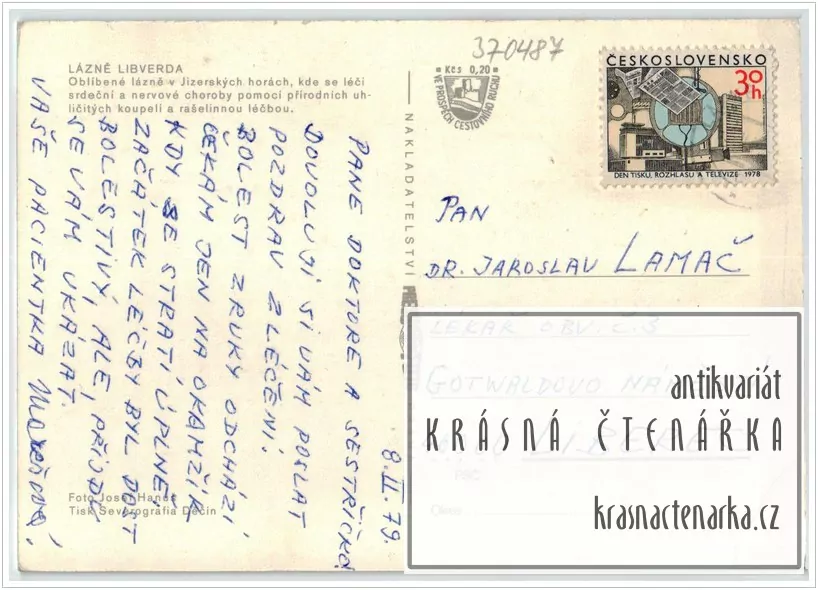 370487
LÁZNĚ LIBVERDA
Oblíbené lázně v Jizerských horách, kde se léčí
srdeční a nervové choroby pomocí přírodních uh-
ličitých koupelí a rašelinnou léčbou.
Kčs 0,20
VE PROSPĚCH CESTOVNÍHO RUCHU
ČESKOSLOVENSKO
30h
DEN TISKU, ROZHLASU A TELEVIZE 1978
NAKLADATELSTVÍ
8.II.79.
PANE DOKTORE A SESTŘIČKO
DOVOLUJI SI VÁM POSLAT
POZDRAV Z LÉČENÍ.
BOLEST ZRUKY ODCHÁZÍ
ČEKÁM JEN NA OKAMŽIK
KDY SE STRATÍ ÚPLNĚ
ZAČÁTEK LÉČBY BYL DOST
BOLESTIVÝ, ALE, PŘIJDU
SE VÁM UKÁZAT.
VAŠE PACIENTKA
PAN
DR. JAROSLAV LAMAČ
LÉKAŘ OBV. Č.5
GOTWALDOVO NÁM
LIBEREC
antikvariát
KRÁSNÁ ČTENÁŘKA
krasnactenarka.cz
Foto Josef Hanuš
Tisk Severografia Děčín